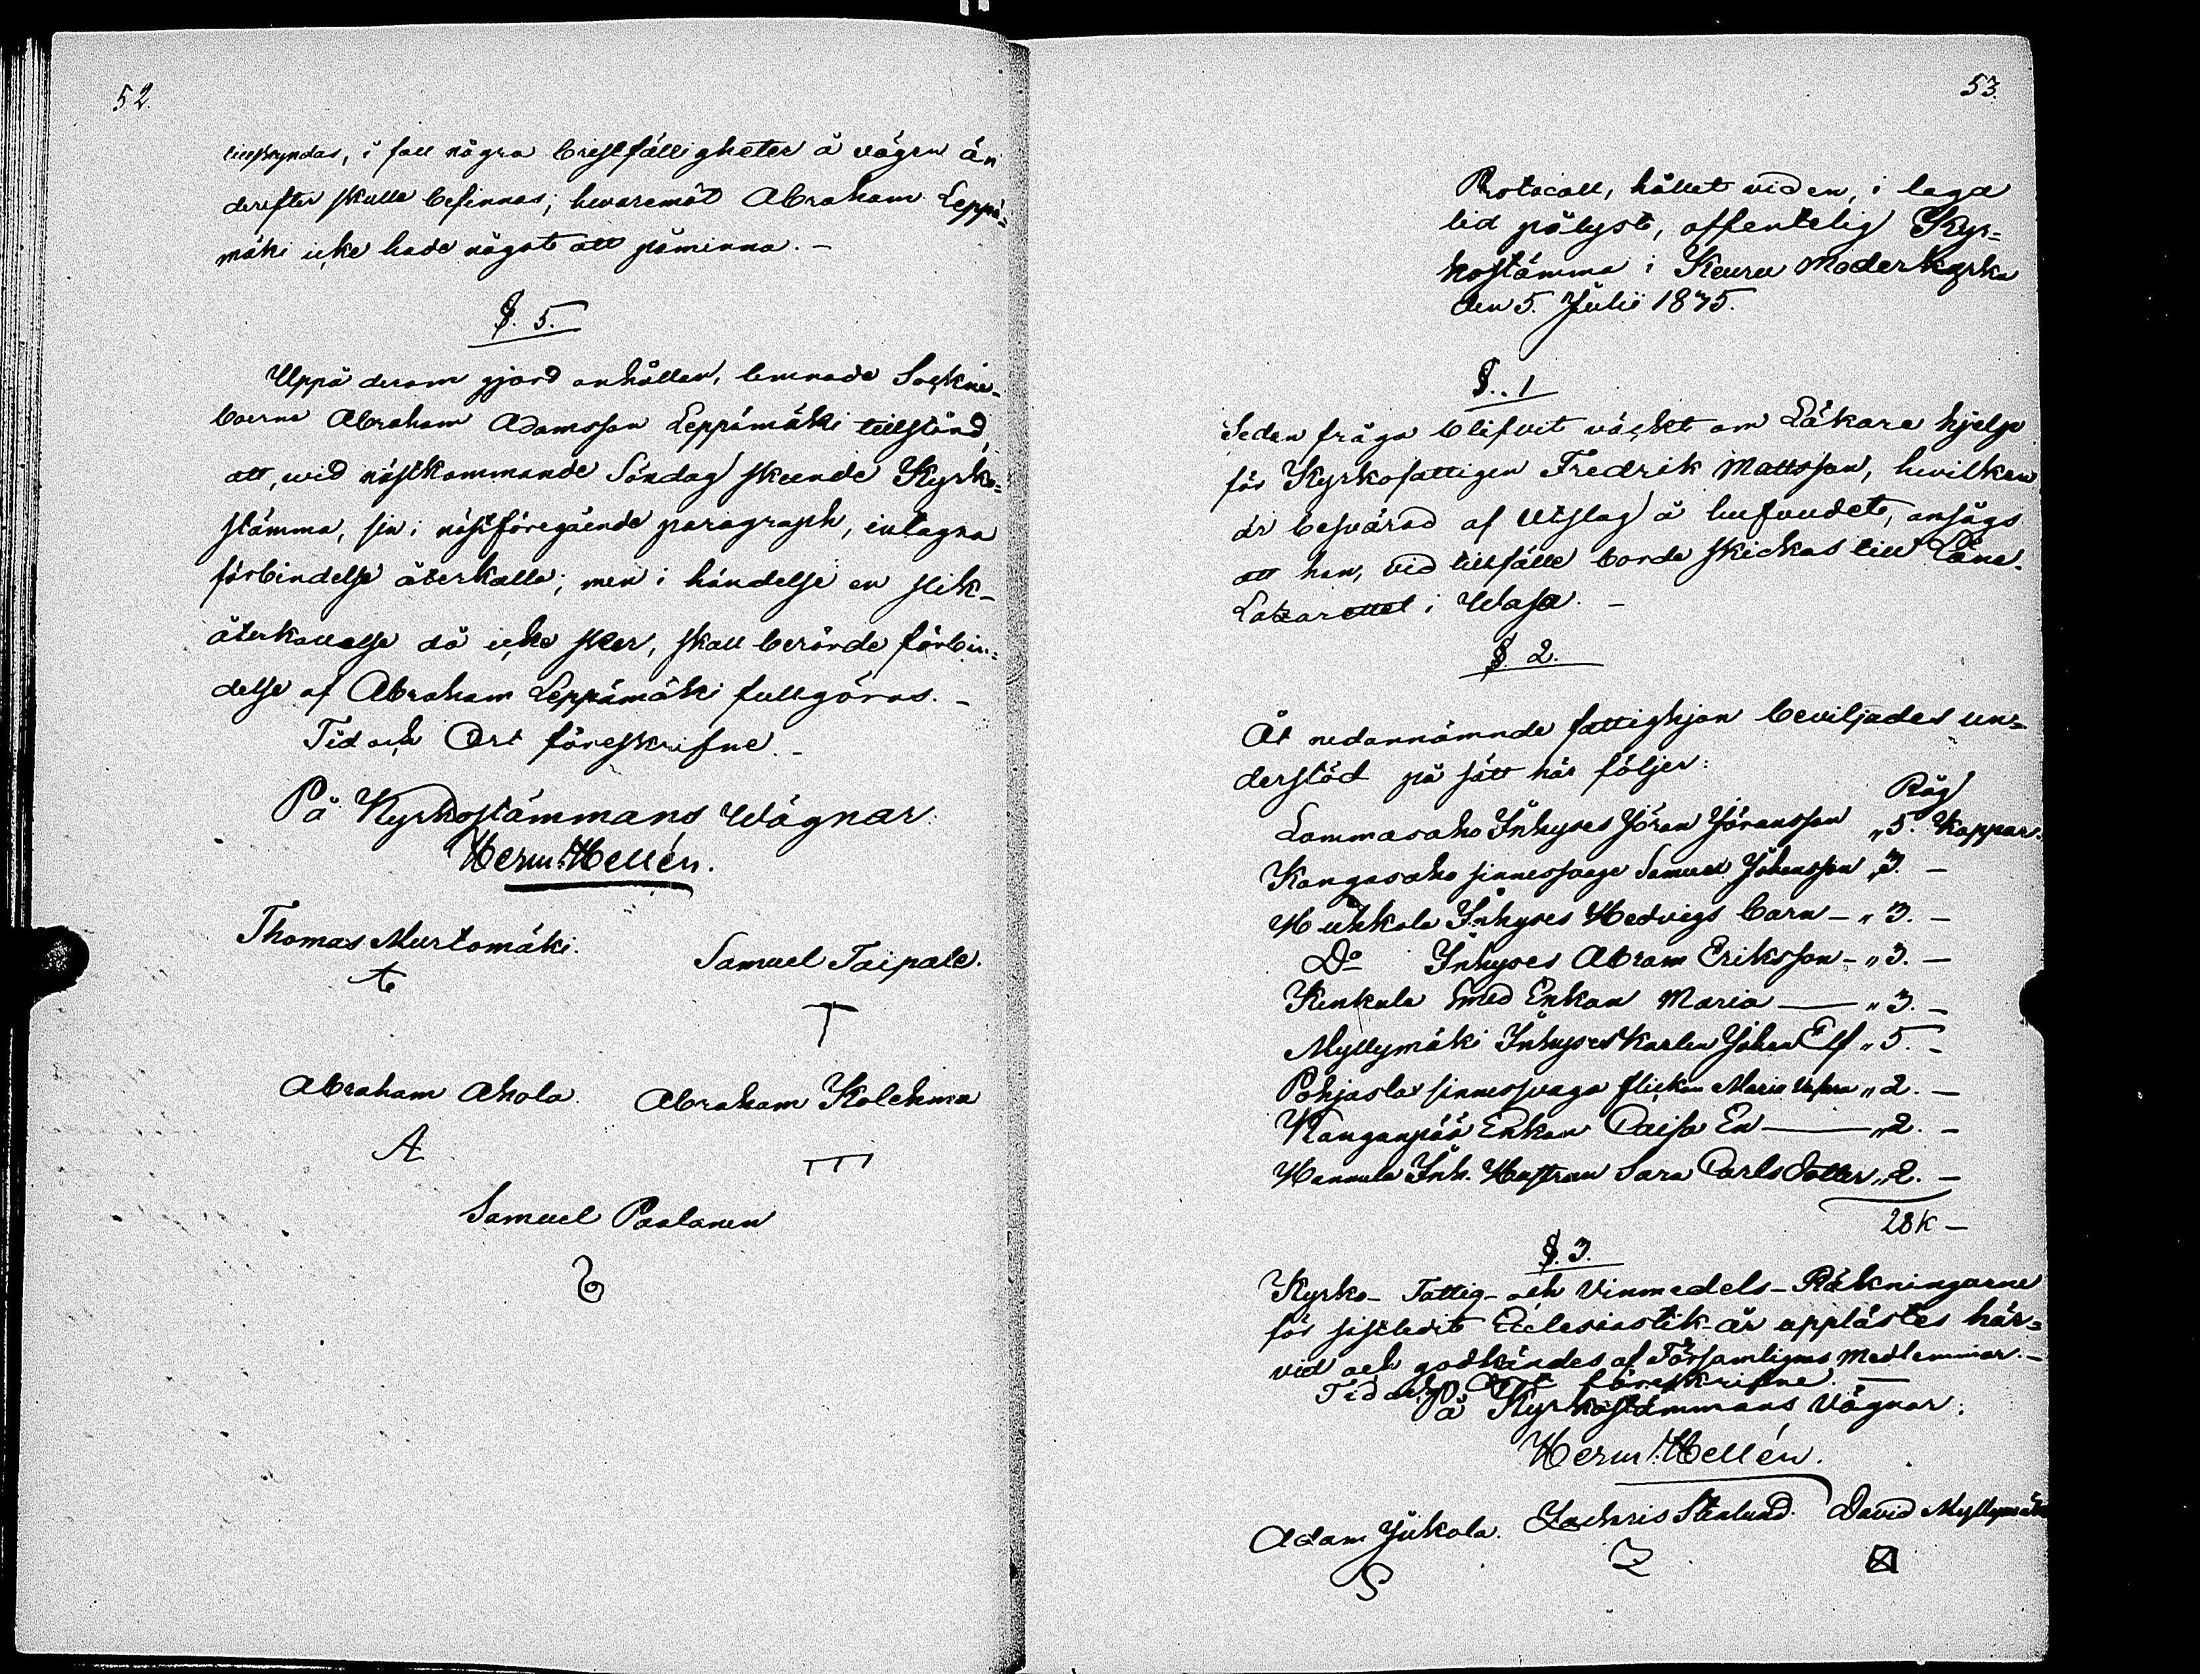 52.
tillskyndas, i fall några bristfälligheter å vägen än
derefter skulle befinnas; hvaremot Abraham Leppä=
mäki icke hade något att påminna. -
§. 5.
Uppå derom gjord anhållan, lemnade Sockne-
boerne Abraham Adamsson Leppämäki tillstånd,
att, wid nästkommande Söndag skeende Kyrko=
stämma, sin i nästföregående paragraph, intagna
förbindelse återkalla; men i händelse en slik-
återkallelse då icke sker, skall berörde förbin=
delse af Abraham Leppämäki fullgöras. -
Tid och Ort föreskrifne. -
På Kyrkostämmans Wägnar:
Herm: Hellén.
Thomas Murtomäki.
Samuel Taipale.
T
Abraham Ahola. Abraham Kolehma
A
Samuel Paalanen
53.
Protocoll, hållet vid en, i laga
tid pålyst, offentelig Kyr=
kostämma i Keuru Moderkyrka
den 5. Julii 1845.
§. 1
Sedan fråga blifvit väckt om Läkare hjelp
för Kyrkofattigen Fredrik Mattsson, hvilken
är besvärad af Utslag å hufvudet, ansågs
att han, vid tillfälle borde skickas till Läns-
Lazarettet i Wasa. -
§. 2.
Åt nedannämnde fattighjon beviljades un=
derstöd på sätt här följer:
Råg
Lammasaho Inhyses Jöran Jöransson „ 5. Kappar.
Kangasaho sinnessvage Samuel Johansson „ 3. -
Huhkola Inhyses Hedvigs barn - „ 3. -
Do Inhyses Abram Eriksson - „ 3. -
Kinkula Smed Enkan Maria - „ 3. -
Myllymäki Inhyses Karlen Johan Elf „ 5. -
Pohjasla sinnessvaga flickan Maria „ 2. -
Kanganpää Enkan Caisa En - „ 2. -
Hannula Inh. Hustrun Sara Carls Dotter „ 2. -
28 K -
§. 3.
Kyrko- Fattig- och Vinmedels-Räkningarne
för sistledit Ecclesiastik-år upplästes här=
vid och godkändes af Församligens Medlemmar. -
Tid och Ort föreskrifne. -
På Kyrkostämmans Vägnar:
Herm: Hellén.
Adam Jukola. Zachris Stenlund. David Myllymäki
Z